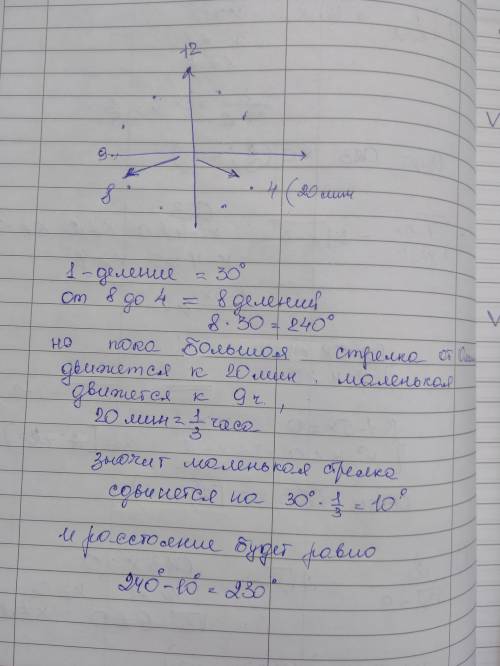 12
9
8
4 (20 мин
1 - деление = 30°
от 8 до 4 = 8 делений
8 · 30 = 240°
но пока большая стрелка от
движется к 20 мин. маленькая
движется к 9 ч,
20 мин = 1/3 часа
значит маленькая стрелка
сдвинется на 30° · 1/3 = 10°
и расстояние будет равно
240° - 10° = 230°